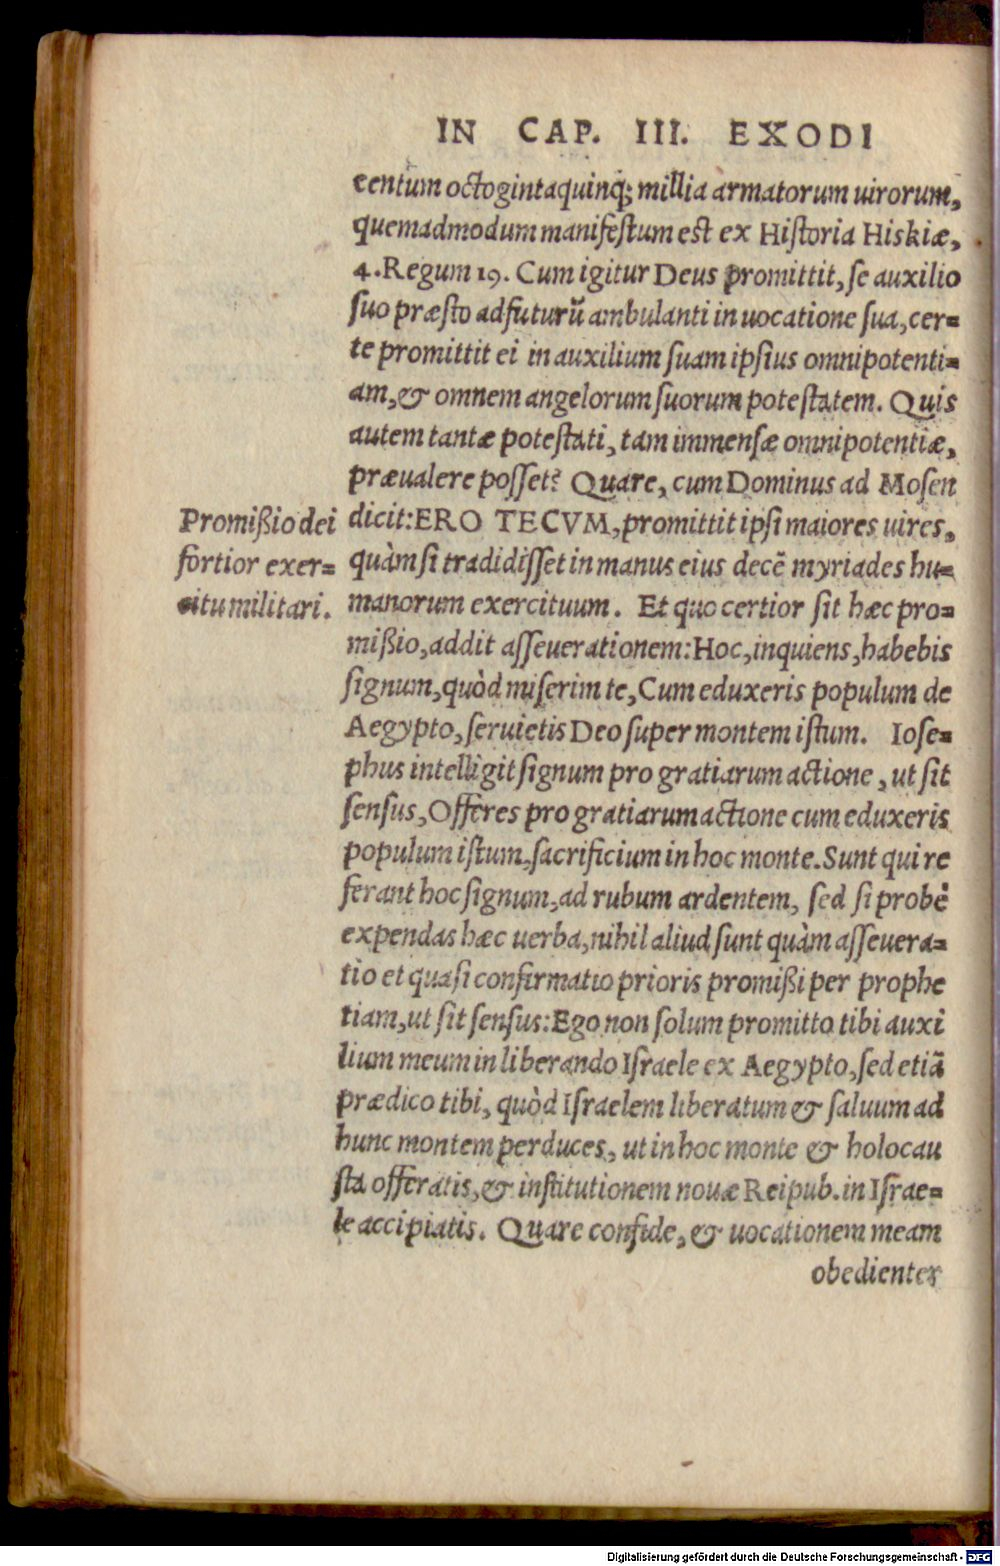 IN CAP. III. EXODI
centum octogintaquinq; millia armatorum uirorum,
quemadmodum manifestum est ex Historia Hiskiæ,
4. Regum 19. Cum igitur Deus promittit, se auxilio
suo præsto adfuturũ ambulanti in uocatione sua, cer=
te promittit ei in auxilium suam ipsius omnipotenti=
am, & omnem angelorum suorum potestatem. Quis
autem tantæ potestati, tam immensæ omnipotentiæ,
præualere posset? Quare, cum Dominus ad Mosen
dicit: ERO TECVM, promittit ipsi maiores uires,
quàm si tradidisset in manus eius decẽ myriades hu=
manorum exercituum. Et quo certior sit hæc pro=
mißio, addit asseuerationem: Hoc, inquiens, habebis
signum, quòd miserim te, Cum eduxeris populum de
Aegypto, seruietis Deo super montem istum. Iose=
phus intelligit signum pro gratiarum actione, ut sit
sensus, Offeres pro gratiarum actione cum eduxeris
populum istum, sacrificium in hoc monte. Sunt qui re
ferant hoc signum, ad rubum ardentem, sed si probè
expendas hæc uerba, nihil aliud sunt quàm asseuera=
tio et quasi confirmatio prioris promißi per prophe
tiam, ut sit sensus: Ego non solum promitto tibi auxi
lium meum in liberando Israele ex Aegypto, sed etiã
prædico tibi, quòd Israelem liberatum & saluum ad
hunc montem perduces, ut in hoc monte & holocau
sta offeratis, & institutionem nouæ Reipub. in Israe=
le accipiatis. Quare confide, & uocationem meam
obedienter
Promißio dei
fortior exer=
citu militari.
Digitalisierung gefördert durch die Deutsche Forschungsgemeinschaft - DFG